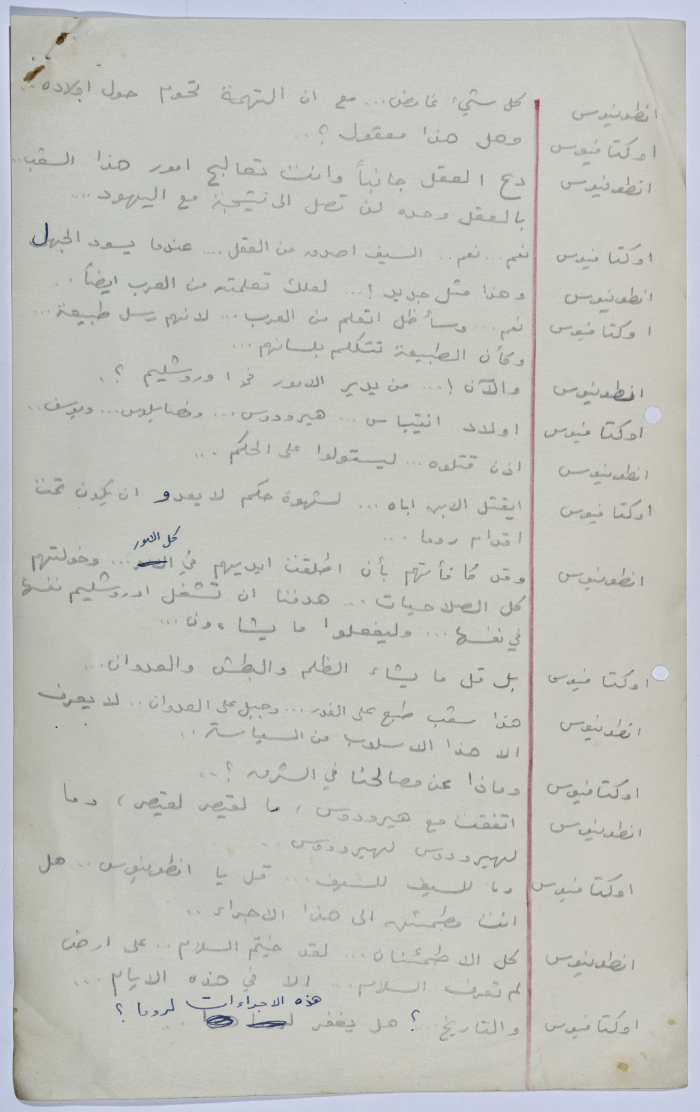 انطونيوس كل شيء غامض... مع ان التهمة تحوم حول اولاده...
اوكتافيوس وهل هذا معقول ؟..
انطونيوس دع العقل جانباً وانت تعالج امور هذا الشعب..
بالعقل وحده لن تصل الى نتيجة مع اليهود...
اوكتافيوس نعم... نعم.. السيف اصدق من العقل .... عندما يسود الجهل
انطونيوس وهذا مثل جديد ؟... لعلك تعلمته من العرب ايضاً..
اوكتافيوس نعم... وسأظل اتعلم من العرب... لانهم رسل طبيعة...
وكأن الطبيعة تتكلم بلسانهم...
انطونيوس والآن !... من يدير الامور في اوروشليم ؟.
اوكتافيوس اولاد انتيباس... هيرودوس... وفصايلوس... ويوسف..
انطونيوس اذن قتلوه... ليستولوا على الحكم...
اوكتافيوس ايقتل الابن اباه... لشهوة حكم لا يعدو ان يكون تحت
اقدام روما...
كل الامور
انطونيوس وقد كافأتهم بأن اطلقت ايديهم في ... وخولتهم
كل الصلاحيات... هدفنا ان تشغل اوروشليم نفسها
في نفسها... وليفعلوا ما يشاءون...
اوكتافيوس بل قل ما يشاء الظلم والبطش والعدوان...
انطونيوس هذا شعب طبع على الغدر... وجبل على العدوان.. لا يعرف
الا هذا الاسلوب من السياسة..
اوكتافيوس وماذا عن مصالحنا في الشرق ؟..
انطونيوس اتفقت مع هيرودوس ، ما لقيصر لقيصر ، وما
لهيرودوس لهيرودوس..
اوكتافيوس وما للسيف للسيف... قل يا انطونيوس... هل
انت مطمئن الى هذا الاجراء..
انطونيوس كل الاطمئنان... لقد خيّم السلام.. على ارض
لم تعرف السلام... الا في هذه الايام...
هذه الاجراءات لروما ؟
اوكتافيوس والتاريخ...؟ هل يغفر ...